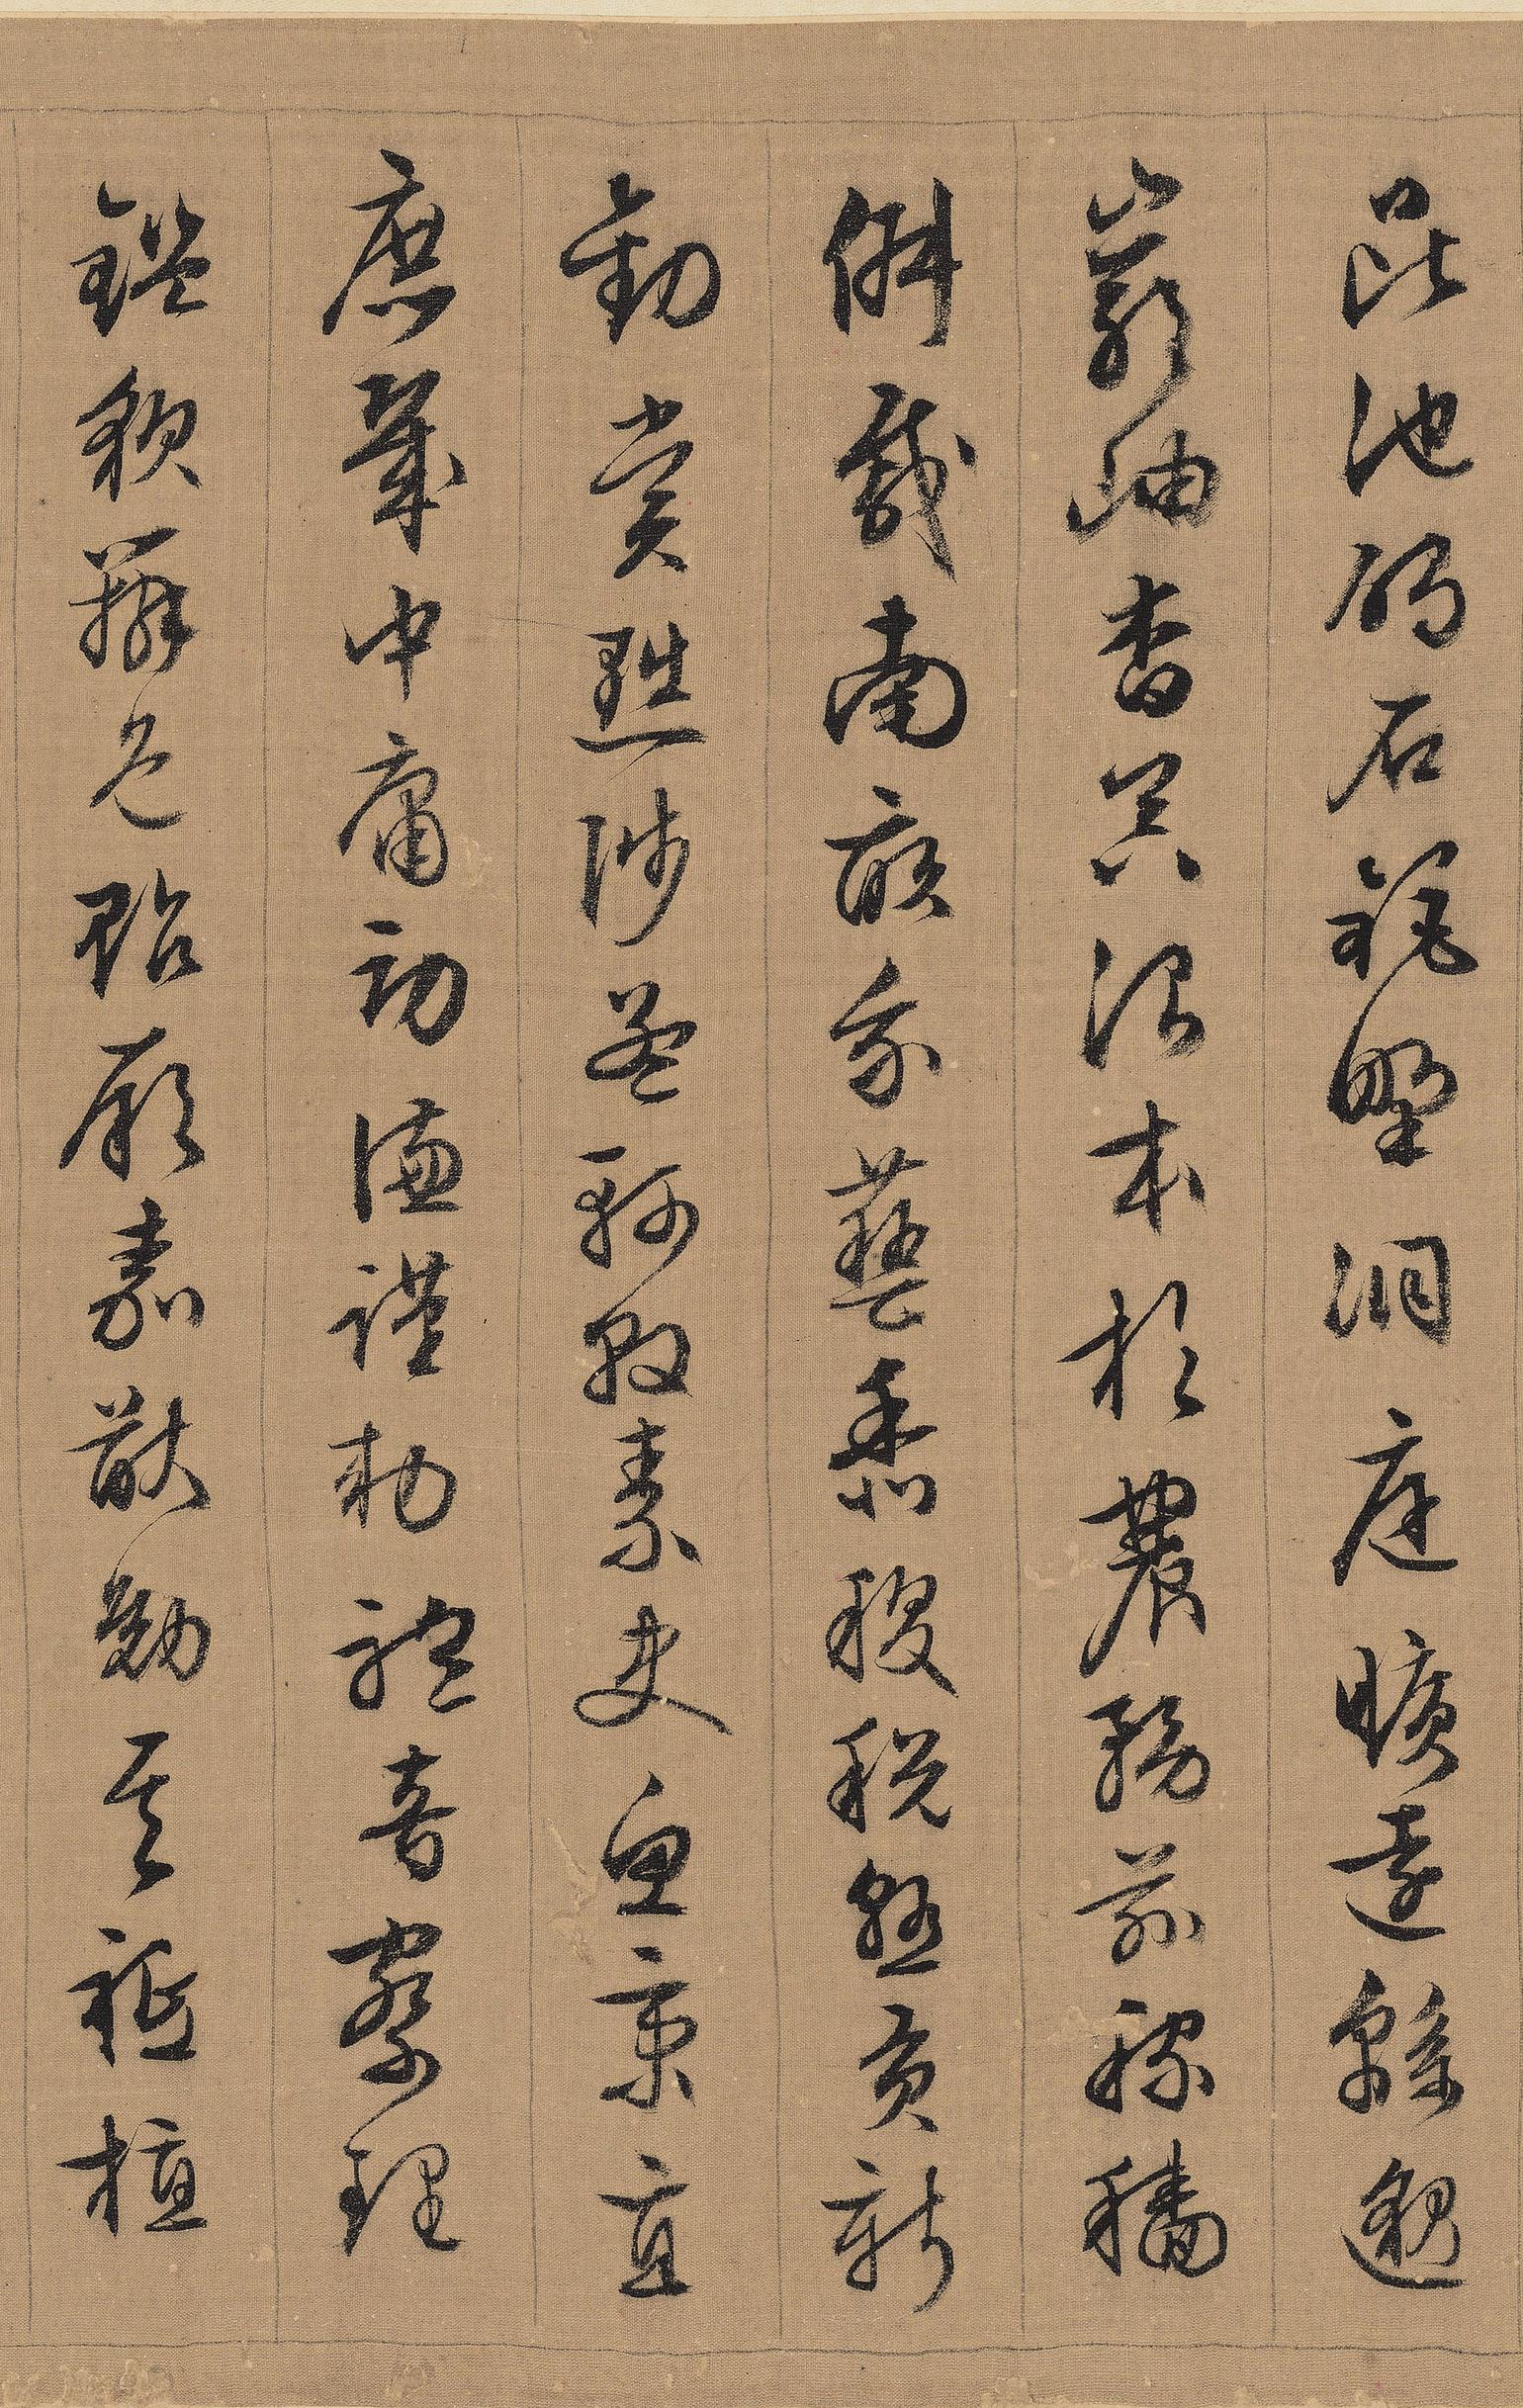 昆池碣石鉅野洞庭曠遠緜邈
巖岫杳冥治本於農務茲稼穡
俶載南畝我藝黍稷稅熟貢新
勸賞黜陟孟軻敦素史魚秉直
庶幾中庸勞謙謹勅聆音察理
鑑貌辨色貽厥嘉猷勉其祗植